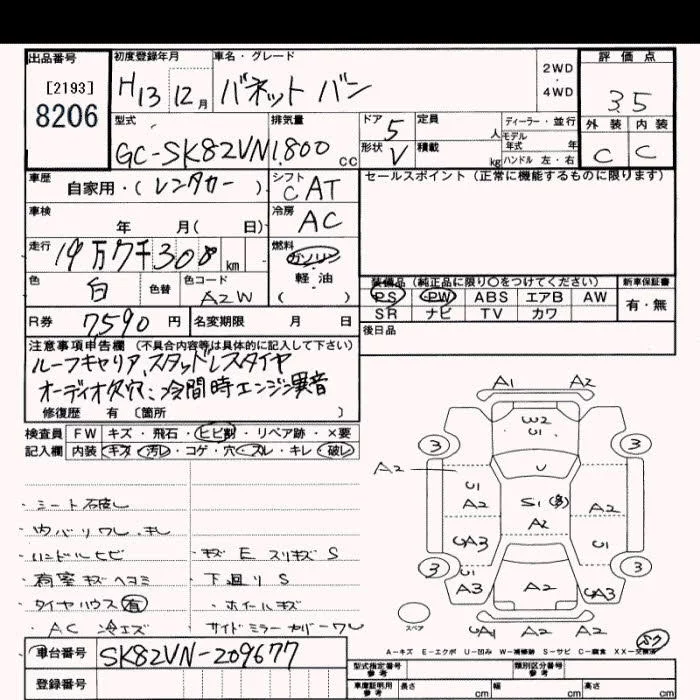 出品番号 初度登録年月 車名・グレード 評価点
[2193]
8206
H13 12月 バネット バン 2WD・4WD 3.5
型式 排気量 ドア 5 定員 人 ディーラー・並行 外装 内装
GC-SK82VN 1,800 cc 形状 V 積載 kg モデル年式 年 ハンドル 左・右 C C
車歴 自家用・(レンタカー) シフト CAT セールスポイント(正常に機能するものに限ります)
車検 年 月( 日) 冷房 AC
走行 19万7千308 km 燃料 ガソリン
軽油
( )
色 白 色替 色コード A2W
装備品(純正品に限り〇をつけてください) 新車保証書
PS PW ABS エアB AW 有・無
SR ナビ TV カワ
R券 7590円 名変期限 月 日
後日品
注意事項申告欄(不具合内容等は具体的に記入して下さい)
ルーフキャリア、スタッドレスタイヤ
オーディオ欠穴、冷間時エンジン異音
修復歴 有 〔箇所 〕
検査員 FW キズ・飛石・ヒビ割・リペア跡・×要
記入欄 内装 キズ・汚レ・コゲ・穴・スレ・キレ・破レ
A1 A2
W2
U1
3 3
A2 U
U1 S1(多)
A2 A2 A2
UA3 U1
3 3
A3 A2 UA3
スペア
UA1 A2 A2
・シート破レ
・内バリワレ、キレ
・ハンドルヒビ ・キズ E スリキズ S
・荷室キズヘコミ ・下廻り S
・タイヤハウス 有 ・ホイールキズ
・AC 冷エズ ・サイドミラーカバーワレ
A-キズ E-エクボ U-凹み W-補修跡 S-サビ C-腐食 XX-交換済
車台番号 SK82VN-209677
登録番号
型式指定番号 参考 類別区分番号 参考
車庫証明用 参考 長さ cm 幅 cm 高さ cm